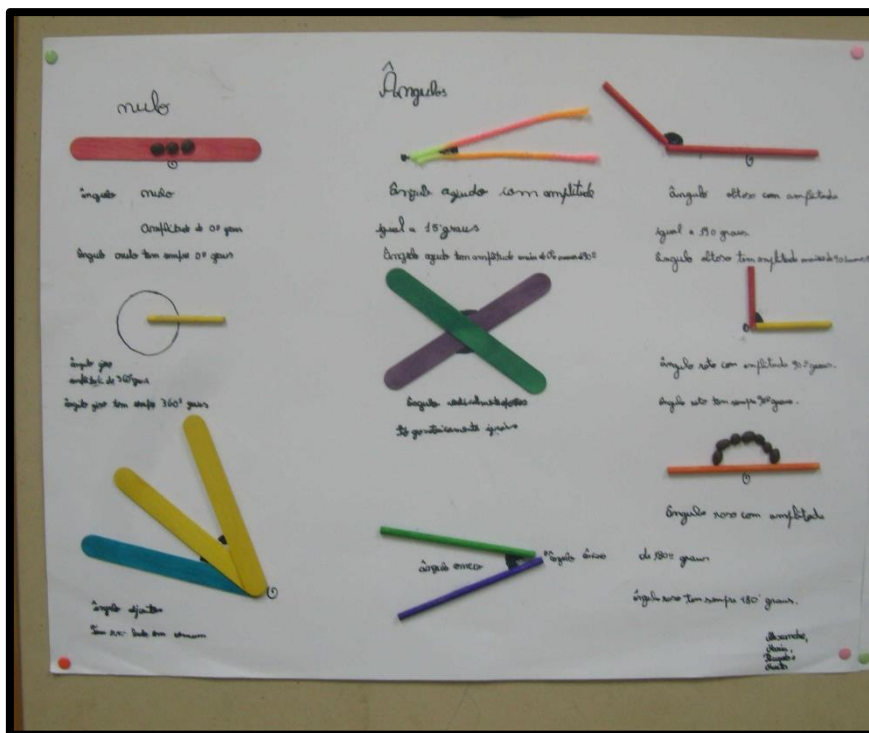 Ângulos
nulo
ângulo nulo
Amplitude de 0º graus
ângulo nulo tem sempre 0º graus
ângulo giro
amplitude de 360º graus
ângulo giro tem sempre 360º graus
ângulo
Tem um lado em comum
ângulo agudo com amplitude
igual a 15 graus
Ângulo agudo tem amplitude mais de 0º menos de 90º
ângulo verticalmente opostos
geometricamente iguais
ângulo
ângulo
ângulo com amplitude
igual a graus
ângulo tem amplitude
ângulo reto com amplitude 90º graus.
ângulo reto tem sempre 90º graus.
ângulo raso com amplitude
de 180º graus
ângulo raso tem sempre 180º graus.
Alexandre,